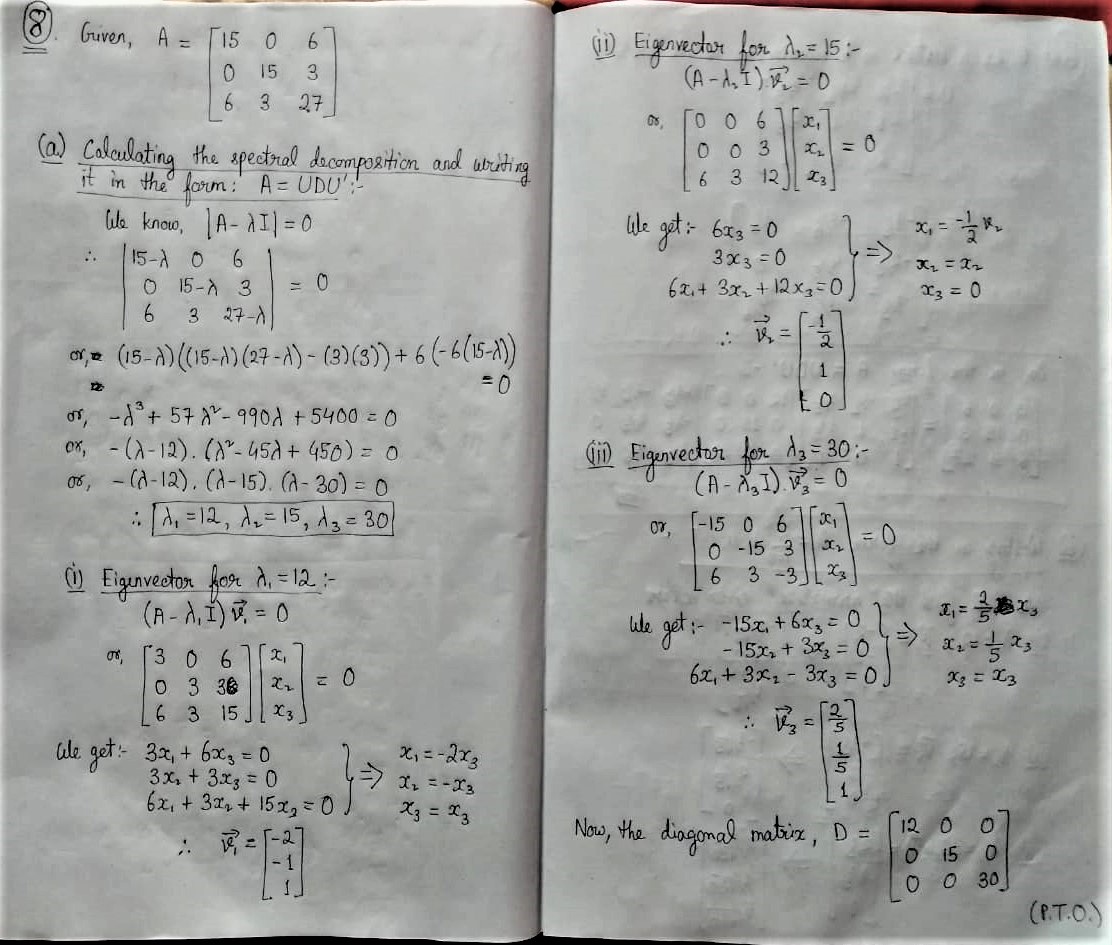 8. Given, A = [15 0 6
0 15 3
6 3 27]
(a) Calculating the spectral decomposition and writing
it in the form: A = UDU':-
We know, |A - λI| = 0
∴ |15-λ 0 6
0 15-λ 3
6 3 27-λ| = 0
or, (15-λ)((15-λ)(27-λ) - (3)(3)) + 6(-6(15-λ))
= 0
or, -λ³ + 57λ² - 990λ + 5400 = 0
or, -(λ-12). (λ² - 45λ + 450) = 0
or, -(λ-12). (λ-15). (λ-30) = 0
∴ λ₁ = 12, λ₂ = 15, λ₃ = 30
(i) Eigenvector for λ₁ = 12 :-
(A - λ₁I) v⃗₁ = 0
or, [3 0 6
0 3 3
6 3 15] [x₁
x₂
x₃] = 0
We get:- 3x₁ + 6x₃ = 0
3x₂ + 3x₃ = 0
6x₁ + 3x₂ + 15x₃ = 0 } => x₁ = -2x₃
x₂ = -x₃
x₃ = x₃
∴ v⃗₁ = [-2
-1
1]
(ii) Eigenvector for λ₂ = 15 :-
(A - λ₂I). v⃗₂ = 0
or, [0 0 6
0 0 3
6 3 12] [x₁
x₂
x₃] = 0
We get:- 6x₃ = 0
3x₃ = 0
6x₁ + 3x₂ + 12x₃ = 0 } => x₁ = -1/2 x₂
x₂ = x₂
x₃ = 0
∴ v⃗₂ = [-1/2
1
0]
(iii) Eigenvector for λ₃ = 30 :-
(A - λ₃I). v⃗₃ = 0
or, [-15 0 6
0 -15 3
6 3 -3] [x₁
x₂
x₃] = 0
We get:- -15x₁ + 6x₃ = 0
-15x₂ + 3x₃ = 0
6x₁ + 3x₂ - 3x₃ = 0 } => x₁ = 2/5 x₃
x₂ = 1/5 x₃
x₃ = x₃
∴ v⃗₃ = [2/5
1/5
1]
Now, the diagonal matrix, D = [12 0 0
0 15 0
0 0 30]
(P.T.O.)